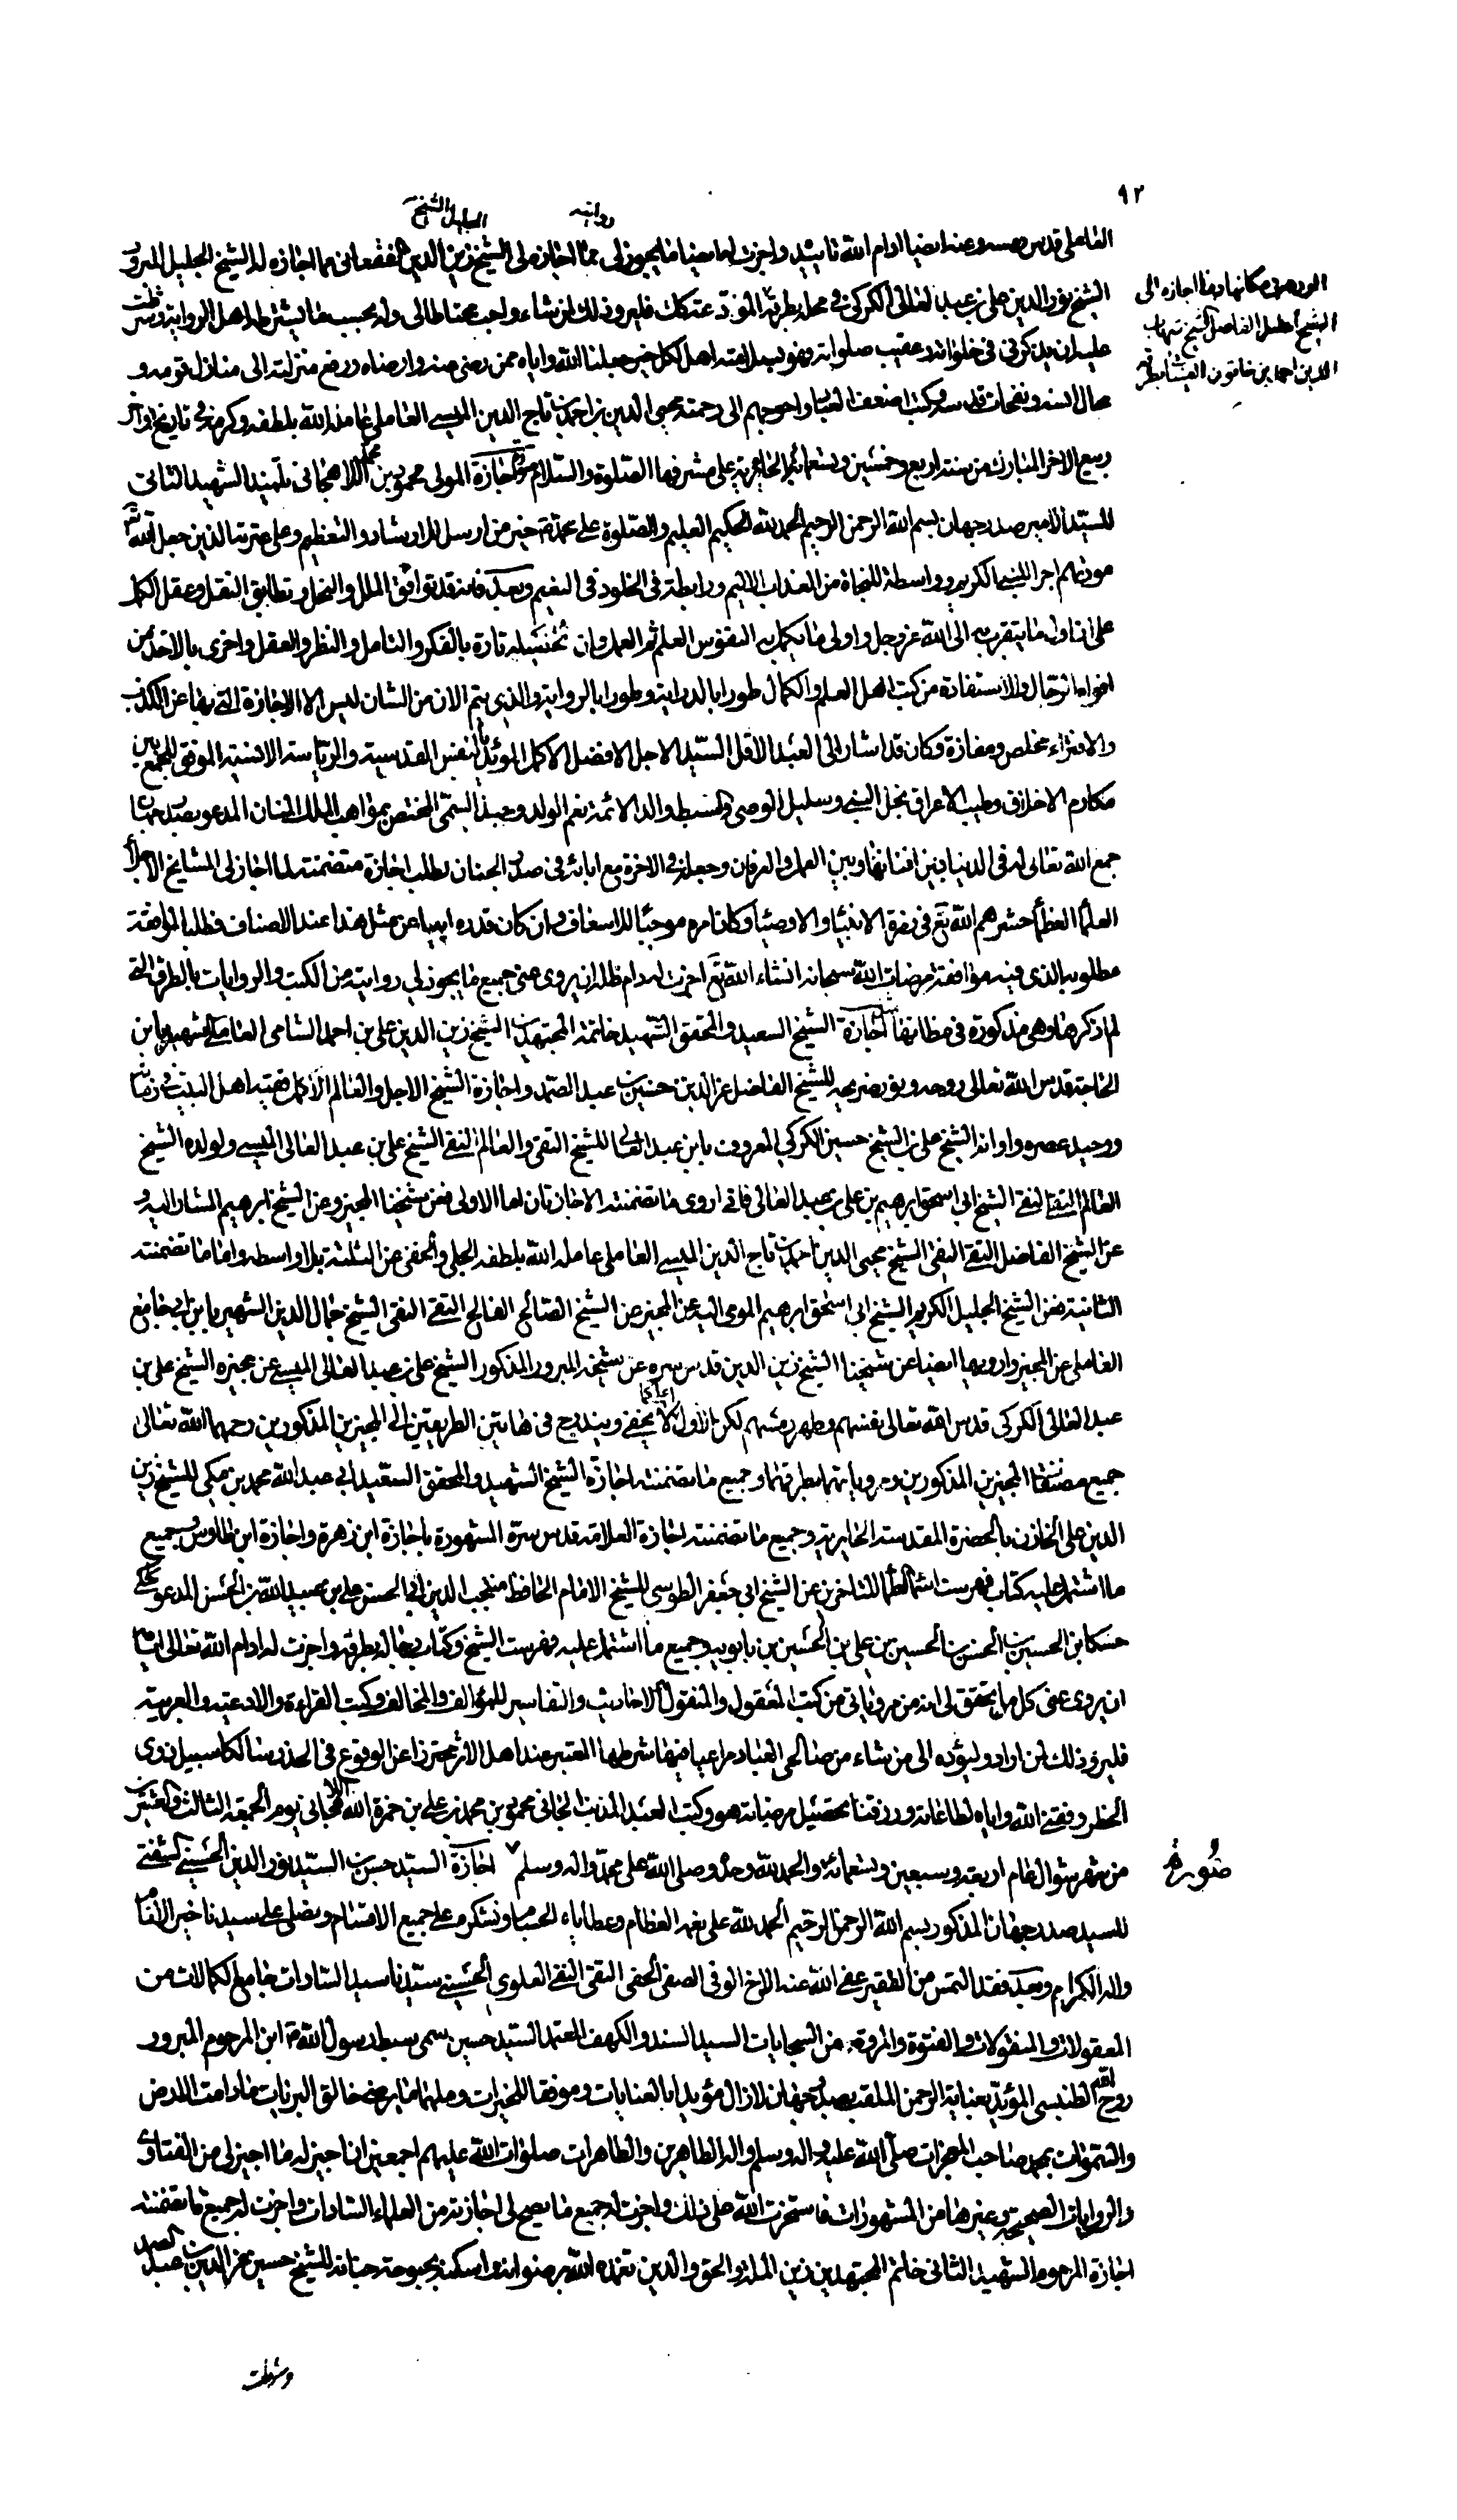 ٩٢
روايته
الجليل الشيخ
العاملي قدس سره وعنه ايضا ادام الله تاييده واجزت لهما ايضا ما يجوز لي مما اجازه لي الشيخ زين الدين الفقعاني مما اجازه له الشيخ الجليل المبرور
الشيخ نور الدين علي بن عبد العالي الكركي في محله بطريقه المؤدّ عنه كك فليرو ذلك لمن شاء واحب محتاطا لي وله بحسب ما يشترطه اهل الرواية وشرطت
عليه ان يذكرني في خلواته وعقيب صلواته وهو سلمه الله اهل لكل خير جعلنا الله واياه ممن رضي عنه وارضاه ورفع منزلته الى منازل قومه و
محال انسه ونفحات قدسه وكتب اضعف العباد واحوجهم الى رحمته محيي الدين بن احمد بن تاج الدين الميسي العاملي عامله الله بلطفه وكرمه في تاريخ اواخر
ربيع الاخر المبارك من سنة اربع وخمسين وتسعمائة بالحائرية على مشرفها الصلوة والسلم صورة اجازة المولى محمود بن محمد اللاهجاني تلميذ الشهيد الثاني
للسيد الامير صدر جهان بسم الله الرحمن الرحيم الحمد لله الحكيم العليم والصلوة على محمد خير من ارسل للارشاد والتعظيم وعلى عترته الذين جعل الله
مودتهم اجرا للنبي الكريم وواسطة للنجاة من العذاب الاليم ورابطة في الخلود في النعيم وبعد فانه قد توافق الملل والنحل وتطابق النقل وعقل الكل
على ان اول ما يتقرب به الى الله عز وجل واولى ما يكمل به النفوس العلم ثم العمل وان تحصيله تارة بالفكر والتامل والنظر والعقل واخرى بالاخذ من
افواه الرجال والاستفادة من كتب اهل العلم والكمال طورا بالدراية وطورا بالرواية والذي يتم الان من الشان ليس الا الاجازة التي بها عن الكذب
والافتراء مخلص ومفازة وكان قد اشار الى العبد الاقل السيد الاجل الافضل الاكمل المؤيد بالنفس القدسية والرياسة الانسية الموفق للجمع بين
مكارم الاخلاق وطيب الاعراق نجل النبي وسليل الوصي والسبط والد الائمة نعم الولد وحبذا السمي المختص بمواهب الملك المنان المدعو بصدر جهان
جمع الله تعالى له في الدنيا بين افنانها وبين العمل والعرفان وجعله في الاخرة مع ابائه في صدر الجنان بطلب اجازة متضمنة لما اجاز لي المشايخ الاجلاء
العلماء العظماء حشرهم الله تع في زمرة الانبياء والاوصياء وكان امره موجبا للاسعاف وان كان قدره ابيا عن مثل هذا عند الانصاف فطلبا لموافقة
مطلوبه الذي فيه موافقة مرضات الله سبحانه انشاء الله تع اجزت له دام ظله ان يروي عني جميع ما يجوز لي روايته من الكتب والروايات بالطرق التي
لم اذكرها وهي مذكورة في مظانها اجازة الشيخ السعيد والمحقق الشهيد خاتمة المجتهدين الشيخ زين الدين علي بن احمد الشامي العاملي الشهير بابن
الحاجة قدس الله تعالى روحه ونور ضريحه للشيخ الفاضل عز الدين حسين بن عبد الصمد واجازة الشيخ الاجل والعالم الاكمل فقيه اهل البيت في زمانه
ووحيد عصره واوانه الشيخ علي بن الشيخ حسين الكركي المعروف بابن عبد العالي للشيخ التقي والعالم النقي الشيخ علي بن عبد العالي الميسي ولولده الشيخ
العالم التقي النقي الشيخ ابي اسحق ابرهيم بن علي بن عبد العالي فاني اروي ما تضمنته الاجازتان اما الاولى فعن شيخنا المجيز وعن الشيخ ابرهيم المشار اليه و
عن الشيخ الفاضل التقي النقي الشيخ محيي الدين احمد بن تاج الدين الميسي العاملي عامله الله بلطفه الجلي والخفي عن الثلثة بلا واسطه واما ما تضمنته
الثانية فعن الشيخ الجليل الكريم الشيخ ابي اسحق ابرهيم المومى اليه عن المجيز عن الشيخ الصالح الفالح التقي النقي الشيخ جمال الدين الشهير بابن ابي جامع
العاملي عن المجيز وارويها ايضا عن شيخنا الشيخ زين الدين قدس سره عن شيخه المبرور المذكور الشيخ علي بن عبد العالي الميسي عن مجيزه الشيخ علي بن
عبد العالي الكركي قدس الله تعالى نفسهم وطهر رمسهم لكن الاول اعلى كما لا يخفى ويندرج في هاتين الطريقتين الى المجيزين المذكورين رحمهما الله تعالى
جميع مصنفات المجيزين المذكورين ومروياتهما بطرقهما وجميع ما تضمنته اجازة الشيخ الشهيد والمحقق السعيد ابي عبد الله محمد بن مكي للشيخ زين
الدين علي الخازن بالحضرة المقدسة الحايرية وجميع ما تضمنته اجازة العلامة قدس سره المشهورة باجازة ابن زهرة واجازة ابن طاوس وجميع
ما اشتمل عليه كتاب فهرست اسماء العلماء المتاخرين عن الشيخ ابي جعفر الطوسي للشيخ الامام الحافظ منتجب الدين ابي الحسن علي بن عبيد الله بن الحسن المدعو
حسكا بن الحسين بن الحسن بن الحسين بن علي بن الحسين بن بابويه وجميع ما اشتمل عليه فهرست الشيخ وكتاب رجاله بطرقه واجزت له ادام الله تعالى ايامه
ان يروي عني كل ما يتحقق لي انه من مروياتي من كتب المعقول والمنقول والاحاديث والتفاسير للمؤالف والمخالف وكتب القراءة والادعية والعربية
فليرو ذلك لمن اراد وليؤده الى من شاء من صالحي العباد مراعيا فيها شرطها المعتبر عند اهل الاثر محترزا عن الوقوع في الحذر سالكا سبيل ذوي
الخطر وفقني الله واياه لطاعاته ورزقنا تحصيل مرضاته هو وكتب العبد المذنب الجاني محمود بن محمد بن علي بن حمزة الله اللاهجاني يوم الجمعة الثالث والعشرين
من شهر شوال لعام اربعة وسبعين وتسعمائة والحمد لله وحده وصلى الله على محمد واله وسلم اجازة السيد حسن بن السيد نور الدين الحسيني الشفتي
للسيد صدر جهان المذكور بسم الله الرحمن الرحيم الحمد لله على نعمه العظام وعطاياه الحسام ونشكره على جميع الاقسام ونصلي على سيدنا خير الانام
واله الكرام وبعد فقد التمس من الفقير عفى الله عنه الاخ الوفي الصفي الحفي التقي النقي العلوي الحسيني سيدنا سيد السادات جامع الكمالات من
المعقولات والمنقولات والفتوة والمروة من السجايات السيد السند والكهف المعتمد السيد حسين سمي سبط رسول الله ابن المرحوم المبرور
روح الله الطبسي المؤيد بعناية الرحمن الملقب بصدر جهان لازال مؤيدا بالعنايات وموفقا للخيرات وملهما ما يرضي خالق البريات مادامت الارض
والسموات بمحمد صاحب المعجزات صلى الله عليه واله وسلم واله الطاهرين والطاهرات صلوات الله عليهم اجمعين ان اجيز له ما اجيز لي من الفتاوى
والروايات الصحيحة وغيرها من المشهورات فاستخرت الله على ذلك واجزت له جميع ما يصح لي اجازته من العلماء السادات واجزت له جميع ما تضمنته
اجازة المرحوم الشهيد الثاني خاتم المجتهدين زين الملة والحق والدين تغمده الله برضوانه واسكنه بحبوحة جنانه للشيخ حسين عز الدين بن عبد الصمد
وشرطت
اجازه الى
الشيخ الجليل الفاضل الشيخ شهاب
الدين احمد بن خاتون العيناثي بطرقه
صورة